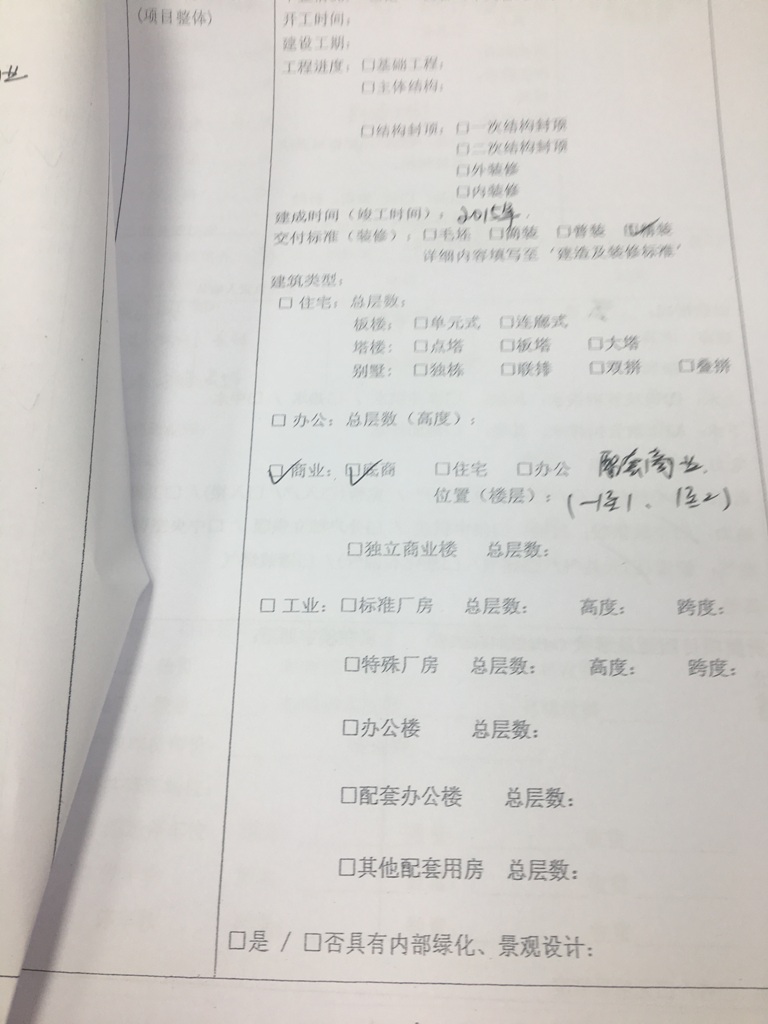 (项目整体)
开工时间：
建设工期：
工程进度：□基础工程：
□主体结构：
□结构封顶：□一次结构封顶
□二次结构封顶
□外装修
□内装修
建成时间（竣工时间）：2015年.
交付标准（装修）：□毛坯 □简装 □普装 ☑精装
详细内容填写至‘建造及装修标准’
建筑类型：
□ 住宅：总层数：
板楼： □单元式 □连廊式
塔楼： □点塔 □板塔 □大塔
别墅： □独栋 □联排 □双拼 □叠拼
□ 办公：总层数（高度）：
☑ 商业：☑底商 □住宅 □办公 配套商业.
位置（楼层）：(-1至1、1至2)
□独立商业楼 总层数：
□ 工业：□标准厂房 总层数： 高度： 跨度：
□特殊厂房 总层数： 高度： 跨度：
□办公楼 总层数：
□配套办公楼 总层数：
□其他配套用房 总层数：
□是 / □否具有内部绿化、景观设计：